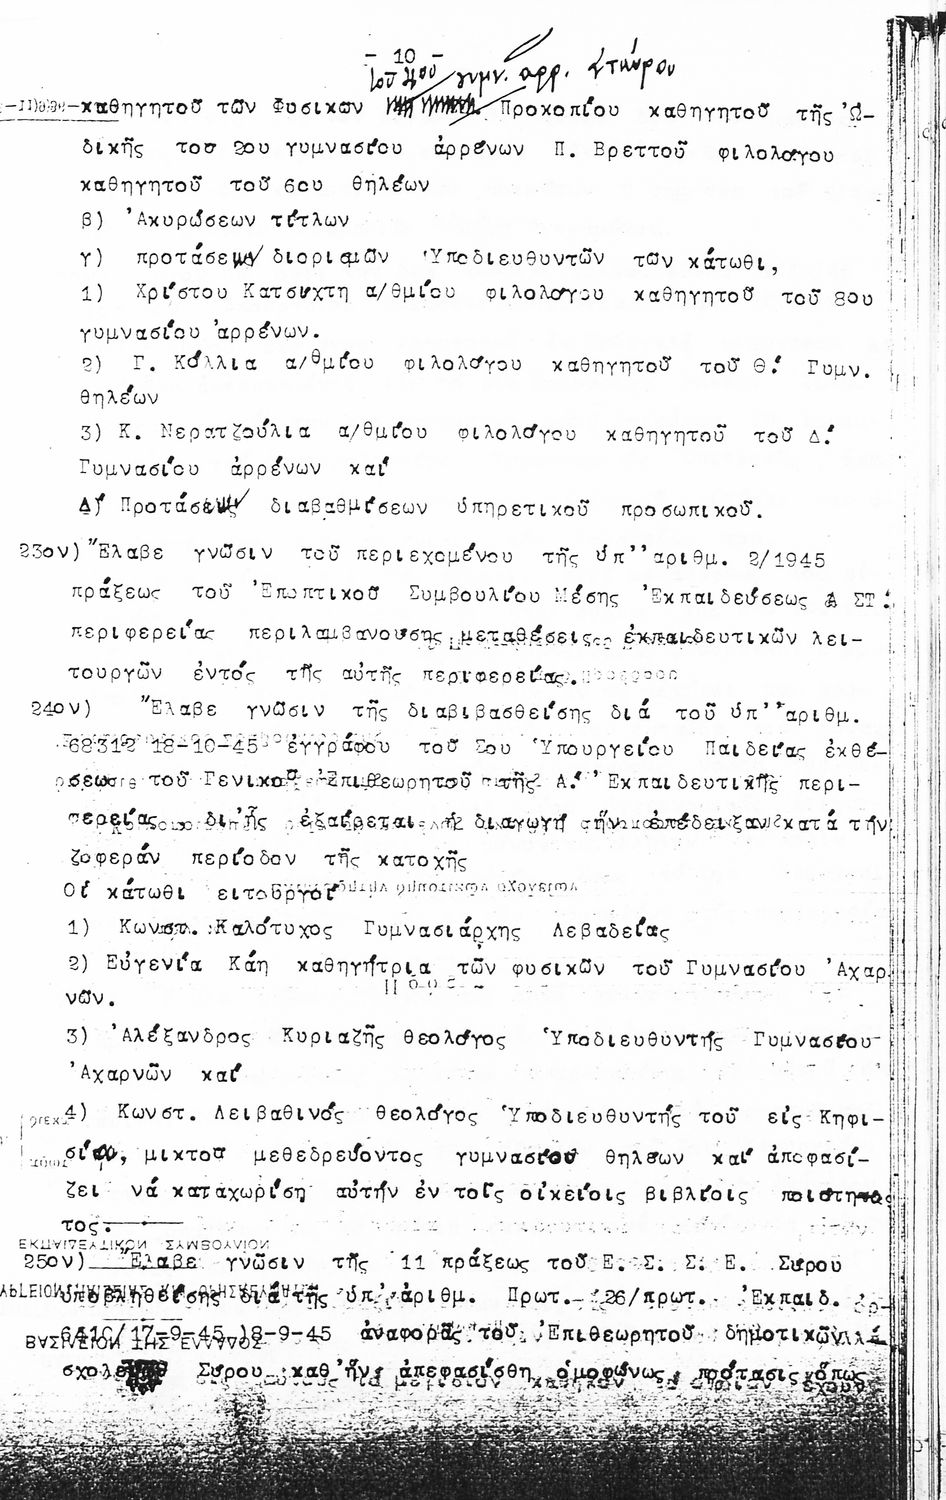 - 10 -
τοῦ 4ου γυμν. αρρ. Σταύρου
καθηγητοῦ τῶν Φυσικῶν Προκοπίου καθηγητοῦ τῆς Ὠ-
δικῆς του 2ου γυμνασίου ἀρρένων Π. Βρεττοῦ φιλολόγου
καθηγητοῦ τοῦ 6ου θηλέων
β) Ἀκυρώσεων τίτλων
γ) προτάσεως διορισμῶν Ὑποδιευθυντῶν των κάτωθι,
1) Χρίστου Κατσιχτη α/θμίου φιλολόγου καθηγητοῦ τοῦ 8ου
γυμνασίου ἀρρένων.
2) Γ. Κόλλια α/θμίου φιλολόγου καθηγητοῦ τοῦ Θ΄ Γυμν.
θηλέων
3) Κ. Νερατζούλια α/θμίου φιλολόγου καθηγητοῦ τοῦ Δ΄
Γυμνασίου ἀρρένων καί
Δ) Προτάσεως διαβαθμίσεων ὑπηρετικοῦ προσωπικοῦ.
23ον) Ἔλαβε γνῶσιν τοῦ περιεχομένου τῆς ὑπ' ἀριθμ. 2/1945
πράξεως τοῦ Ἐποπτικοῦ Συμβουλίου Μέσης Ἐκπαιδεύσεως ΣΤ΄
περιφερείας περιλαμβανούσης μεταθέσεις ἐκπαιδευτικῶν λει-
τουργῶν ἐντός τῆς αὐτῆς περιφερείας.
24ον) Ἔλαβε γνῶσιν τῆς διαβιβασθείσης διά τοῦ ὑπ' ἀριθμ.
68312 18-10-45 ἐγγράφου τοῦ Σου Ὑπουργείου Παιδείας ἐκθέ-
σεως τοῦ Γενικοῦ Ἐπιθεωρητοῦ τῆς Α΄ Ἐκπαιδευτικῆς περι-
φερείας, δι' ἧς ἐξαίρεται ἡ διαγωγή ἥν ἐπέδειξαν κατά τήν
ζοφεράν περίοδον τῆς κατοχῆς
Οἱ κάτωθι ειτουργοί
1) Κωνστ. Καλότυχος Γυμνασιάρχης Λεβαδείας
2) Εὐγενία Κάη καθηγήτρια τῶν φυσικῶν τοῦ Γυμνασίου Ἀχαρ
νῶν.
3) Ἀλέξανδρος Κυριαζῆς θεολόγος Ὑποδιευθυντής Γυμνασίου
Ἀχαρνῶν καί
4) Κωνστ. Λειβαθινός θεολόγος Ὑποδιευθυντής τοῦ εἰς Κηφι-
σίαν, μικτου μεθεδρεύοντος γυμνασίου θηλεων καί ἀποφασί-
ζει νά καταχωρίση αὐτήν ἐν τοῖς οἰκείοις βιβλίοις ποιότητος
τος.
25ον) Ἔλαβε γνῶσιν τῆς 11 πράξεως τοῦ Ε. Σ. Σ. Ε. Συρου
ὑποβληθείσης διά τῆς ὑπ' ἀριθμ. Πρωτ. 26/πρωτ. Ἐκπαιδ.
6410/17-9-45 )8-9-45 ἀναφορᾶς τοῦ Ἐπιθεωρητοῦ δημοτικῶν
Συρου καθ' ἥν ἀπεφασίσθη ὁμοφώνως, πρότασις ὅπως